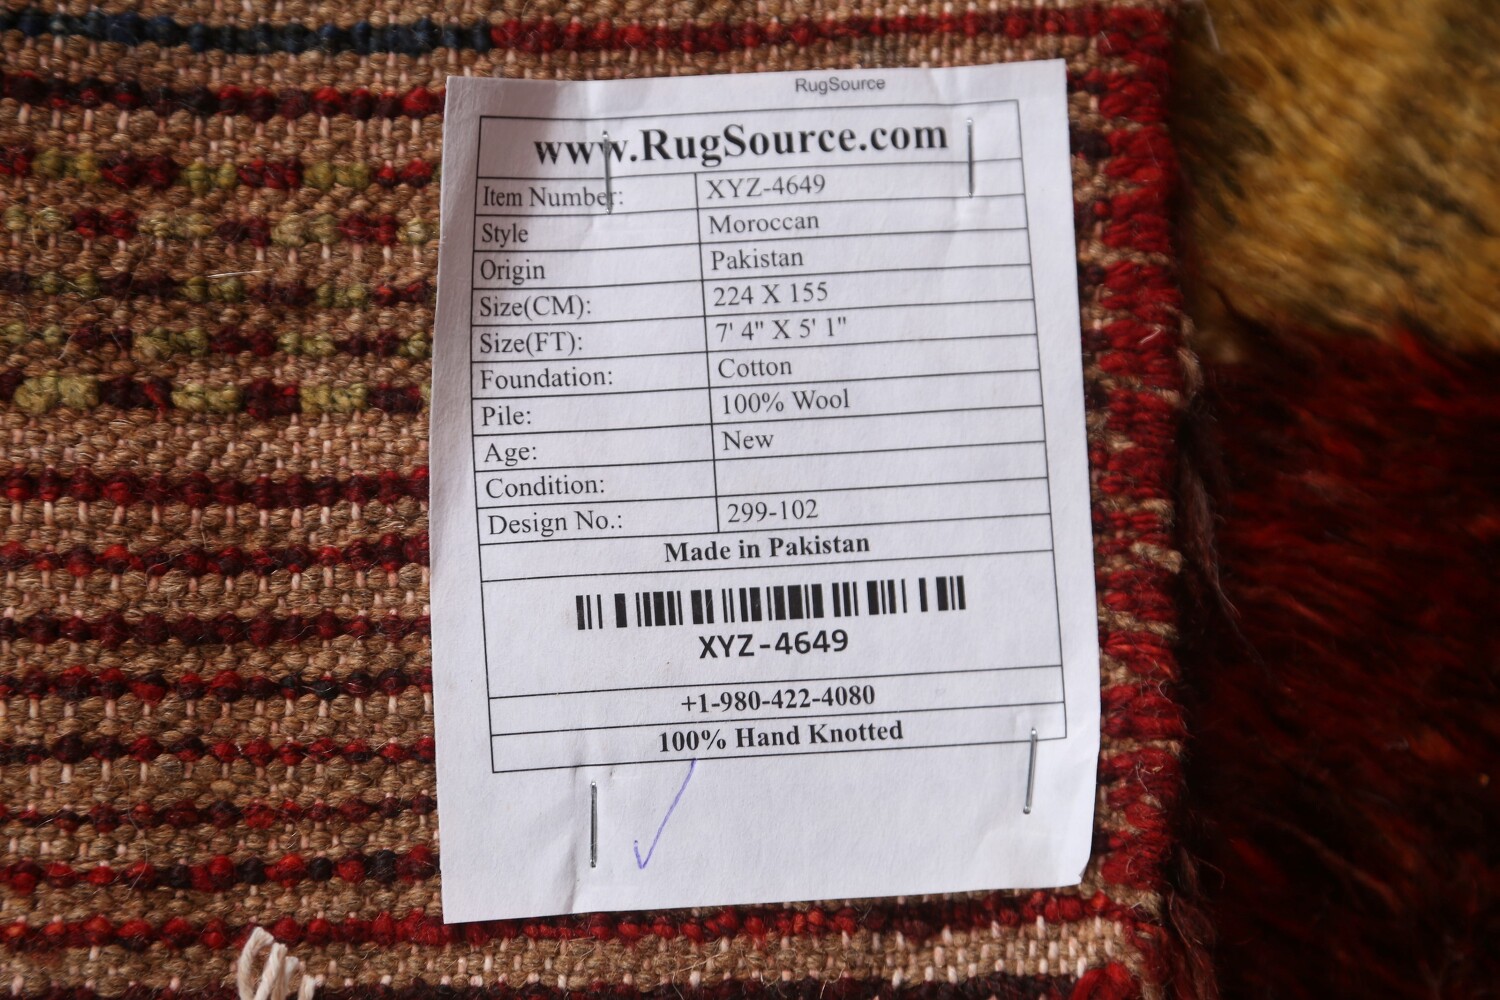 RugSource
www.RugSource.com
Item Number: XYZ-4649
Style Moroccan
Origin Pakistan
Size(CM): 224 X 155
Size(FT): 7' 4" X 5' 1"
Foundation: Cotton
Pile: 100% Wool
Age: New
Condition:
Design No.: 299-102
Made in Pakistan
XYZ-4649
+1-980-422-4080
100% Hand Knotted